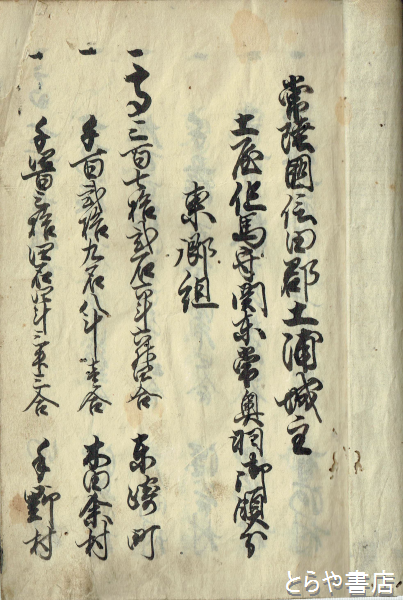 常陸國信田郡土浦城主
土屋但馬守関東常奥羽御領分
東郷組
一高三百七拾弐石六斗六升五合 東崎町
一千百弐拾九石八斗壱合 木田余村
一千四百三拾四石四斗三升三合 手野村
とらや書店